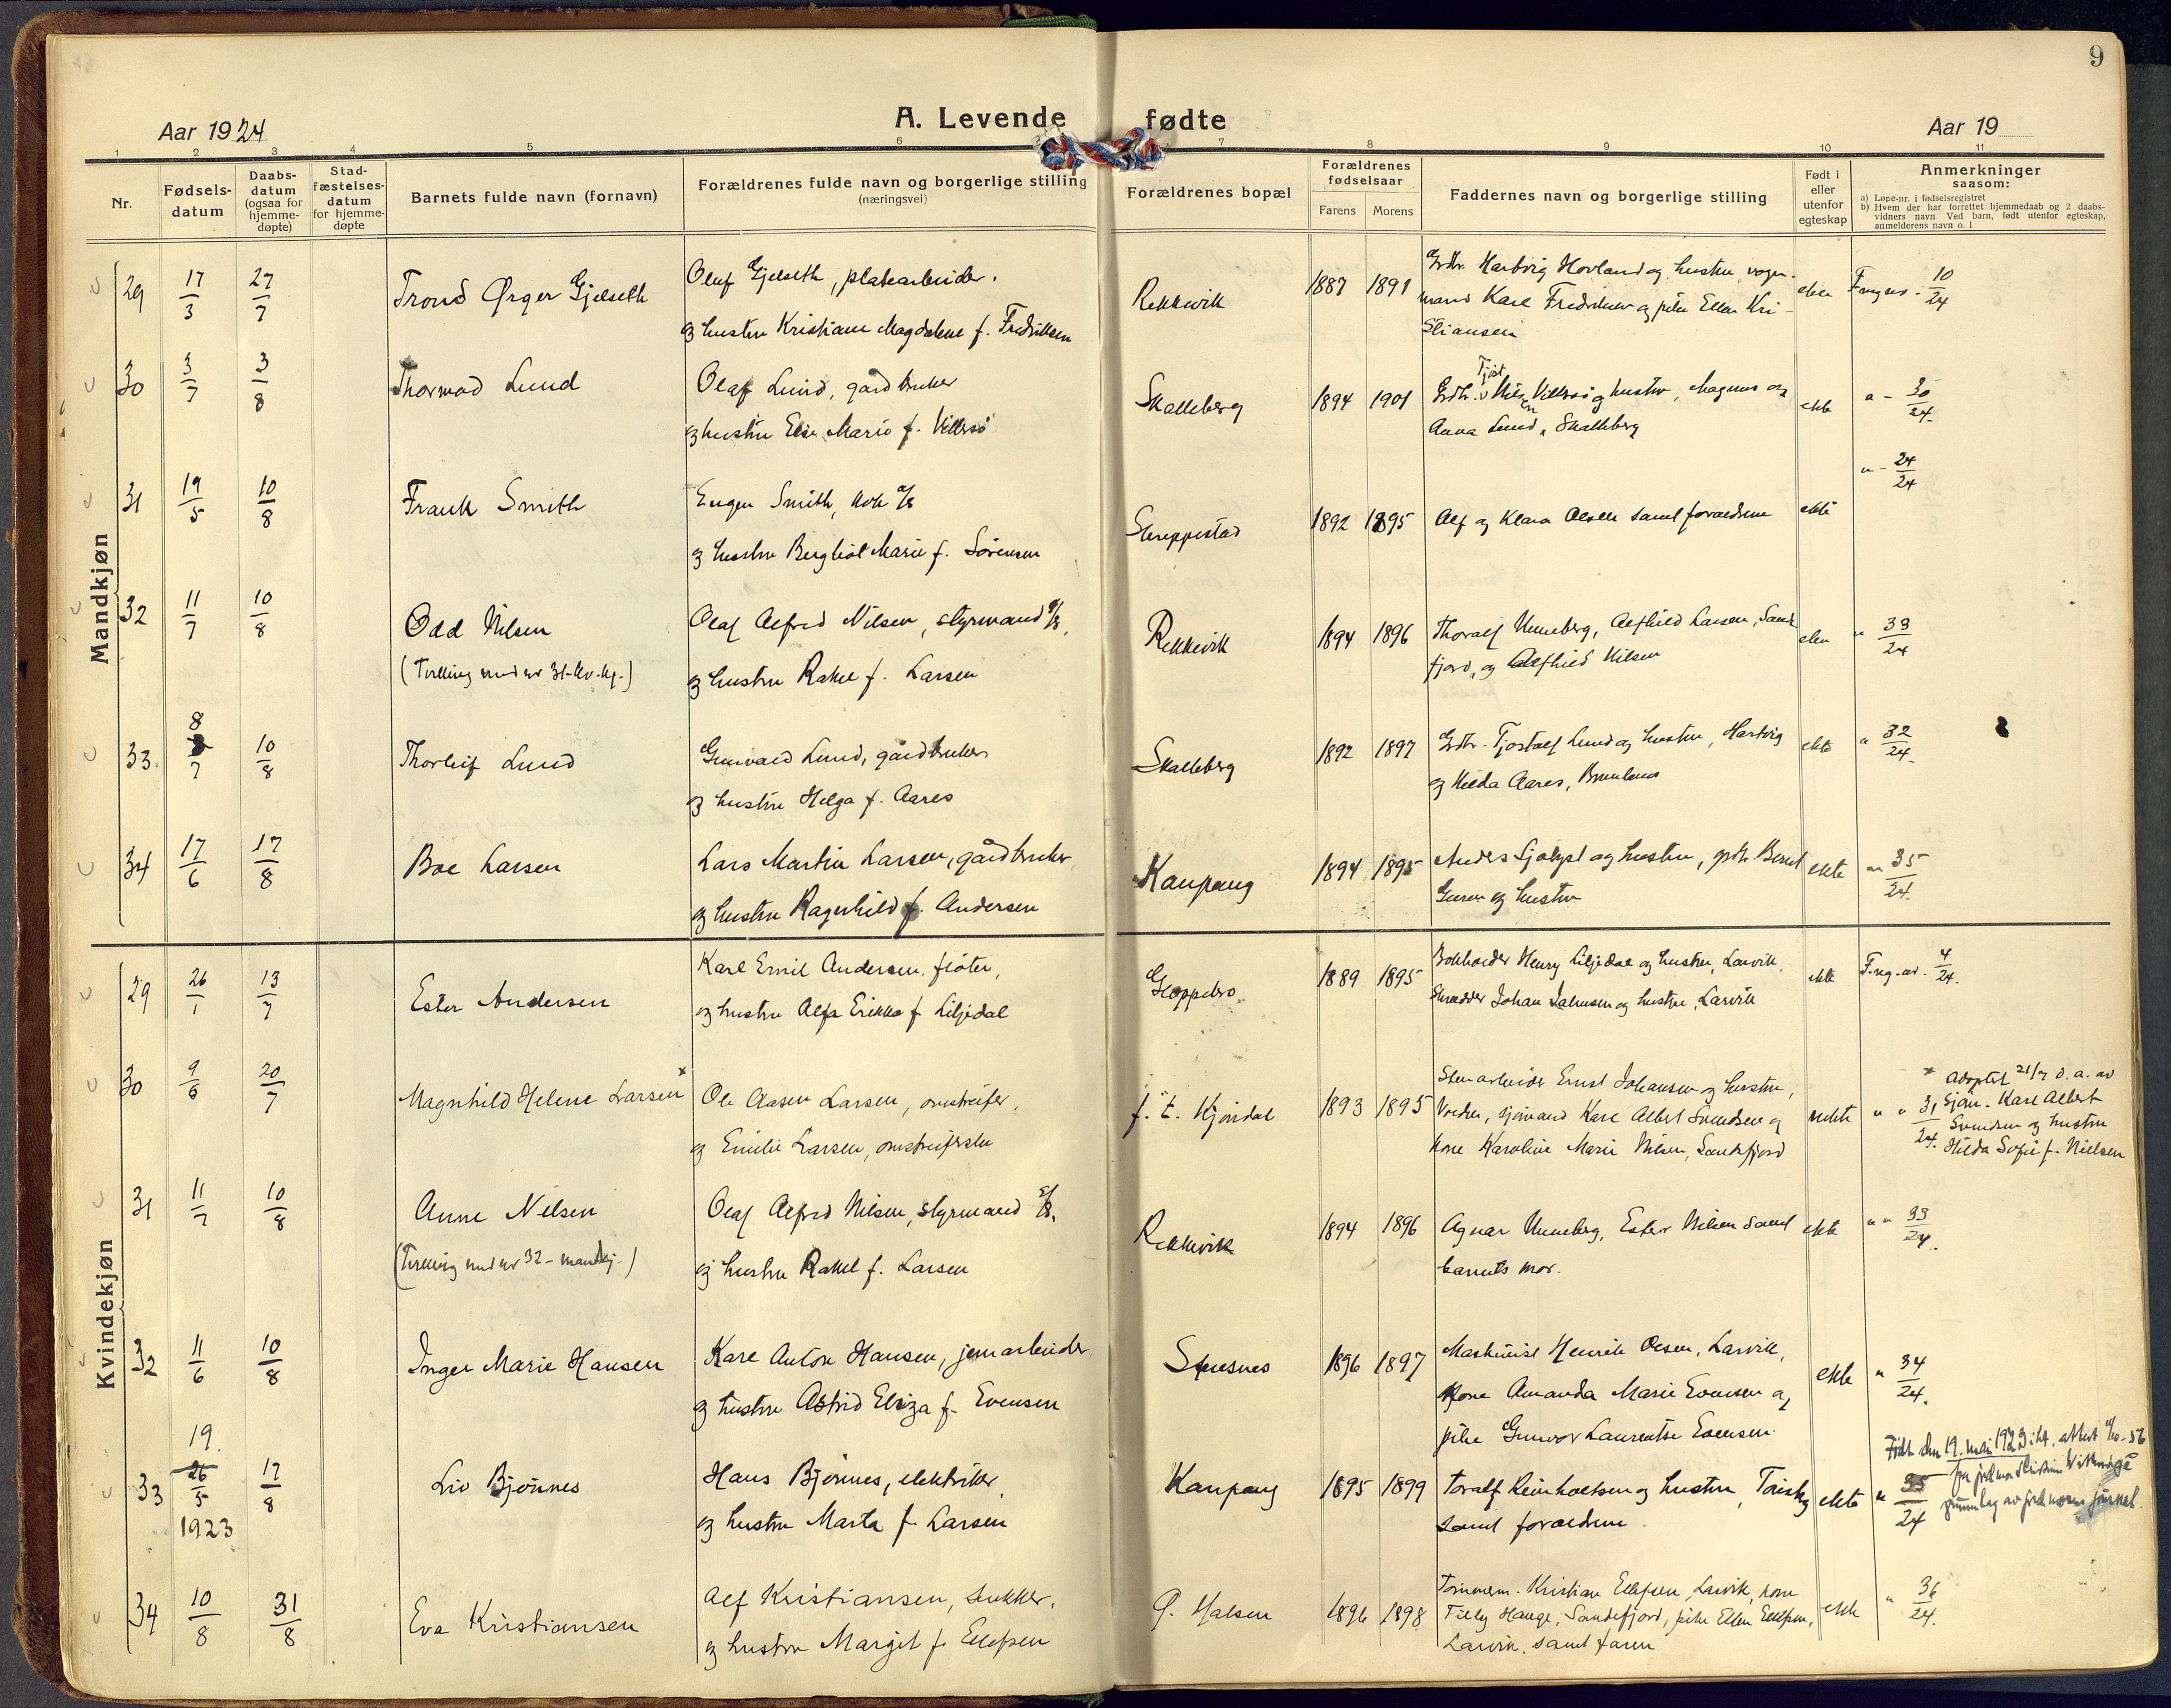 9
Aar 1924
A. Levende fødte
Aar 19
1 2 3 4 5 6 7 8 9 10 11
Nr.
Fødsels-
datum
Daabs-
datum
(ogsaa for
hjemme-
døpte)
Stad-
fæstelses-
datum
for hjemme-
døpte
Barnets fulde navn (fornavn)
Forældrenes fulde navn og borgerlige stilling
(næringsvei)
Forældrenes bopæl
Forældrenes
fødselsaar
Farens Morens
Faddernes navn og borgerlige stilling
Født i
eller
utenfor
egteskap
Anmerkninger
saasom:
a) Løpe-nr. i fødselsregistret
b) Hvem der har forrettet hjemmedaab og 2 daabs-
vidners navn. Ved barn, født utenfor egteskap,
anmelderens navn o. l
Mandkjøn
29 17/3 27/7 Trond Ørger Gjelseth
Oluf Gjelseth, platearbeider.
og hustru Kristiane Magdalene f. Fredriksen
Rekkevik 1887 1891
Grdbr. Hartvig Hovland og hustru, vogn-
mand Karl Fredriksen og pike Ellen Kri-
stiansen
ekte 10/24
30 3/7 3/8 Thormod Lund
Olaf Lund, gårdbruker
og hustru Else Marie f. Villersø
Skalleberg 1894 1901
Tjøst
Grdbr. Nils Villersø og hustru, Magnus og
Anna Lund, Skalleberg
ekte 30/24.
31 19/5 10/8 Frank Smith
Eugen Smith, kok
og hustru Berghöt Marie f. Sørensen
1892 1895
Alf og Klara samt forældrene
ekte 24/24
32 11/7 10/8 Odd Nilsen
(Tvilling med nr 31-kv.kj.)
Olaf Alfred Nilsen, styrmand
og hustru Rakel f. Larsen
Rekkevik 1894 1896
Thoralf Unneberg, Alfhild Larsen, Sande
fjord, og Alfhild Nilsen
33/24
33. 8/7 10/8 Thorleif Lund
Gunvald Lund, gårdbruker
og hustru Helga f. Aares
Skalleberg 1892 1897
Grdbr. Tjostolf Lund og hustru, Hartvig
og Hilda Aares, Brunlanes
ekte 32/24.
34 17/6 17/8 Boe Larsen
Lars Martin Larsen, gårdbruker
og hustru Ragnhild f. Andersen
Kaupang 1894 1895
Anders Sjølyst og hustru, grdb. Bernt
og hustru
ekte 35/24.
Kvindekjøn
29 26/1 13/7 Ester Andersen
Karl Emil Andersen, fløter,
og hustru Alfa Erikka f. Liljedal
Gloppebro 1889 1895
Bokholder Henry Liljedal og hustru, Larvik,
Skrædder Johan og hustru, Larvik
ekte F.reg.nr. 4/24.
30 9/6 20/7 Magnhild Helene Larsen x
Ole Aasen Larsen, omstreifer,
og Emilie Larsen, omstreiferske
f. t. Kjørdal 1893 1895
Stenarbeider Ernst Johansen og hustru,
sjømand Karl Albert Svendsen og
kone Karoline Marie Nilsen, Sandefjord
uekte " " 31/24.
* adoptert 21/7 d. a. av
Sjøm. Karl Albert
Svendsen og hustru
Hilda Sofie f. Nielsen
31 11/7 10/8 Anne Nilsen
(Tvilling med nr 32 - mandkj.)
Olaf Alfred Nilsen, styrmand
og hustru Rakel f. Larsen
Rekkevik 1894 1896
Agnar Unneberg, Ester Nilsen samt
barnets mor.
ekte " " 33/24.
32 11/6 10/8 Inger Marie Hansen
Karl Anton Hansen, jernarbeider
og hustru Astrid Eliza f. Evensen
1896 1897
Maskinist Henrik Olsen, Larvik,
kone Amanda Marie Evensen og
pike Gunvor Laurentse Evensen.
ekte " 34/24.
33 19. 26/5 1923 17/8 Liv Bjønnes
Hans Bjønnes, elektriker,
og hustru Marta f. Larsen
Kaupang 1895 1899
Toralf Reinholtsen og hustru,
samt forældrene.
ekte " 35/24
Født den 19. mai 1923
34 10/8 31/8 Eva Kristiansen
Alf Kristiansen, snekker,
og hustru Margit f. Ellefsen
Ø. Halsen 1896 1898
Tømmerm. Kristian Ellefsen, Larvik, kone
Tilly Hauge, Sandefjord, pike Ellen Ellefsen,
Larvik, samt faren
ekte " 36/24.